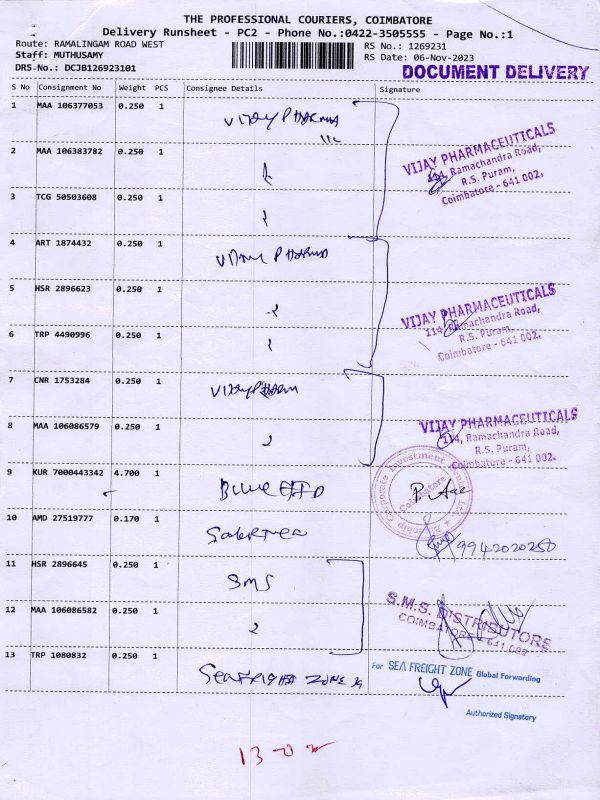 THE PROFESSIONAL COURIERS, COIMBATORE
Delivery Runsheet - PC2 - Phone No.:0422-3505555 - Page No.:1
Route: RAMALINGAM ROAD WEST
Staff: MUTHUSAMY
DRS-No.: DCJB126923101
RS No.: 1269231
RS Date: 06-Nov-2023
DOCUMENT DELIVERY
S No Consignment No Weight PCS Consignee Details Signature
1 MAA 106377053 0.250 1 VIJAY PHARMA
VIJAY PHARMACEUTICALS
114, Ramachandra Road,
R.S. Puram,
Coimbatore - 641 002.
2 MAA 106383782 0.250 1
3 TCG 50503608 0.250 1
4 ART 1874432 0.250 1 VIJAY PHARMA
5 HSR 2896623 0.250 1
VIJAY PHARMACEUTICALS
114, Ramachandra Road,
R.S. Puram,
Coimbatore - 641 002.
6 TRP 4490996 0.250 1
7 CNR 1753284 0.250 1 VIJAY PHARM
8 MAA 106086579 0.250 1
VIJAY PHARMACEUTICALS
114, Ramachandra Road,
R.S. Puram,
Coimbatore - 641 002.
9 KUR 7000443342 4.700 1 BLUE
Coimbatore
10 AMD 27519777 0.170 1
9942020250
11 HSR 2896645 0.250 1 SMS
S.M.S. DISTRIBUTORS
COIMBATORE - 641 002
12 MAA 106086582 0.250 1
13 TRP 1080832 0.250 1 ZONE
For SEA FREIGHT ZONE Global Forwarding
Authorised Signatory
13